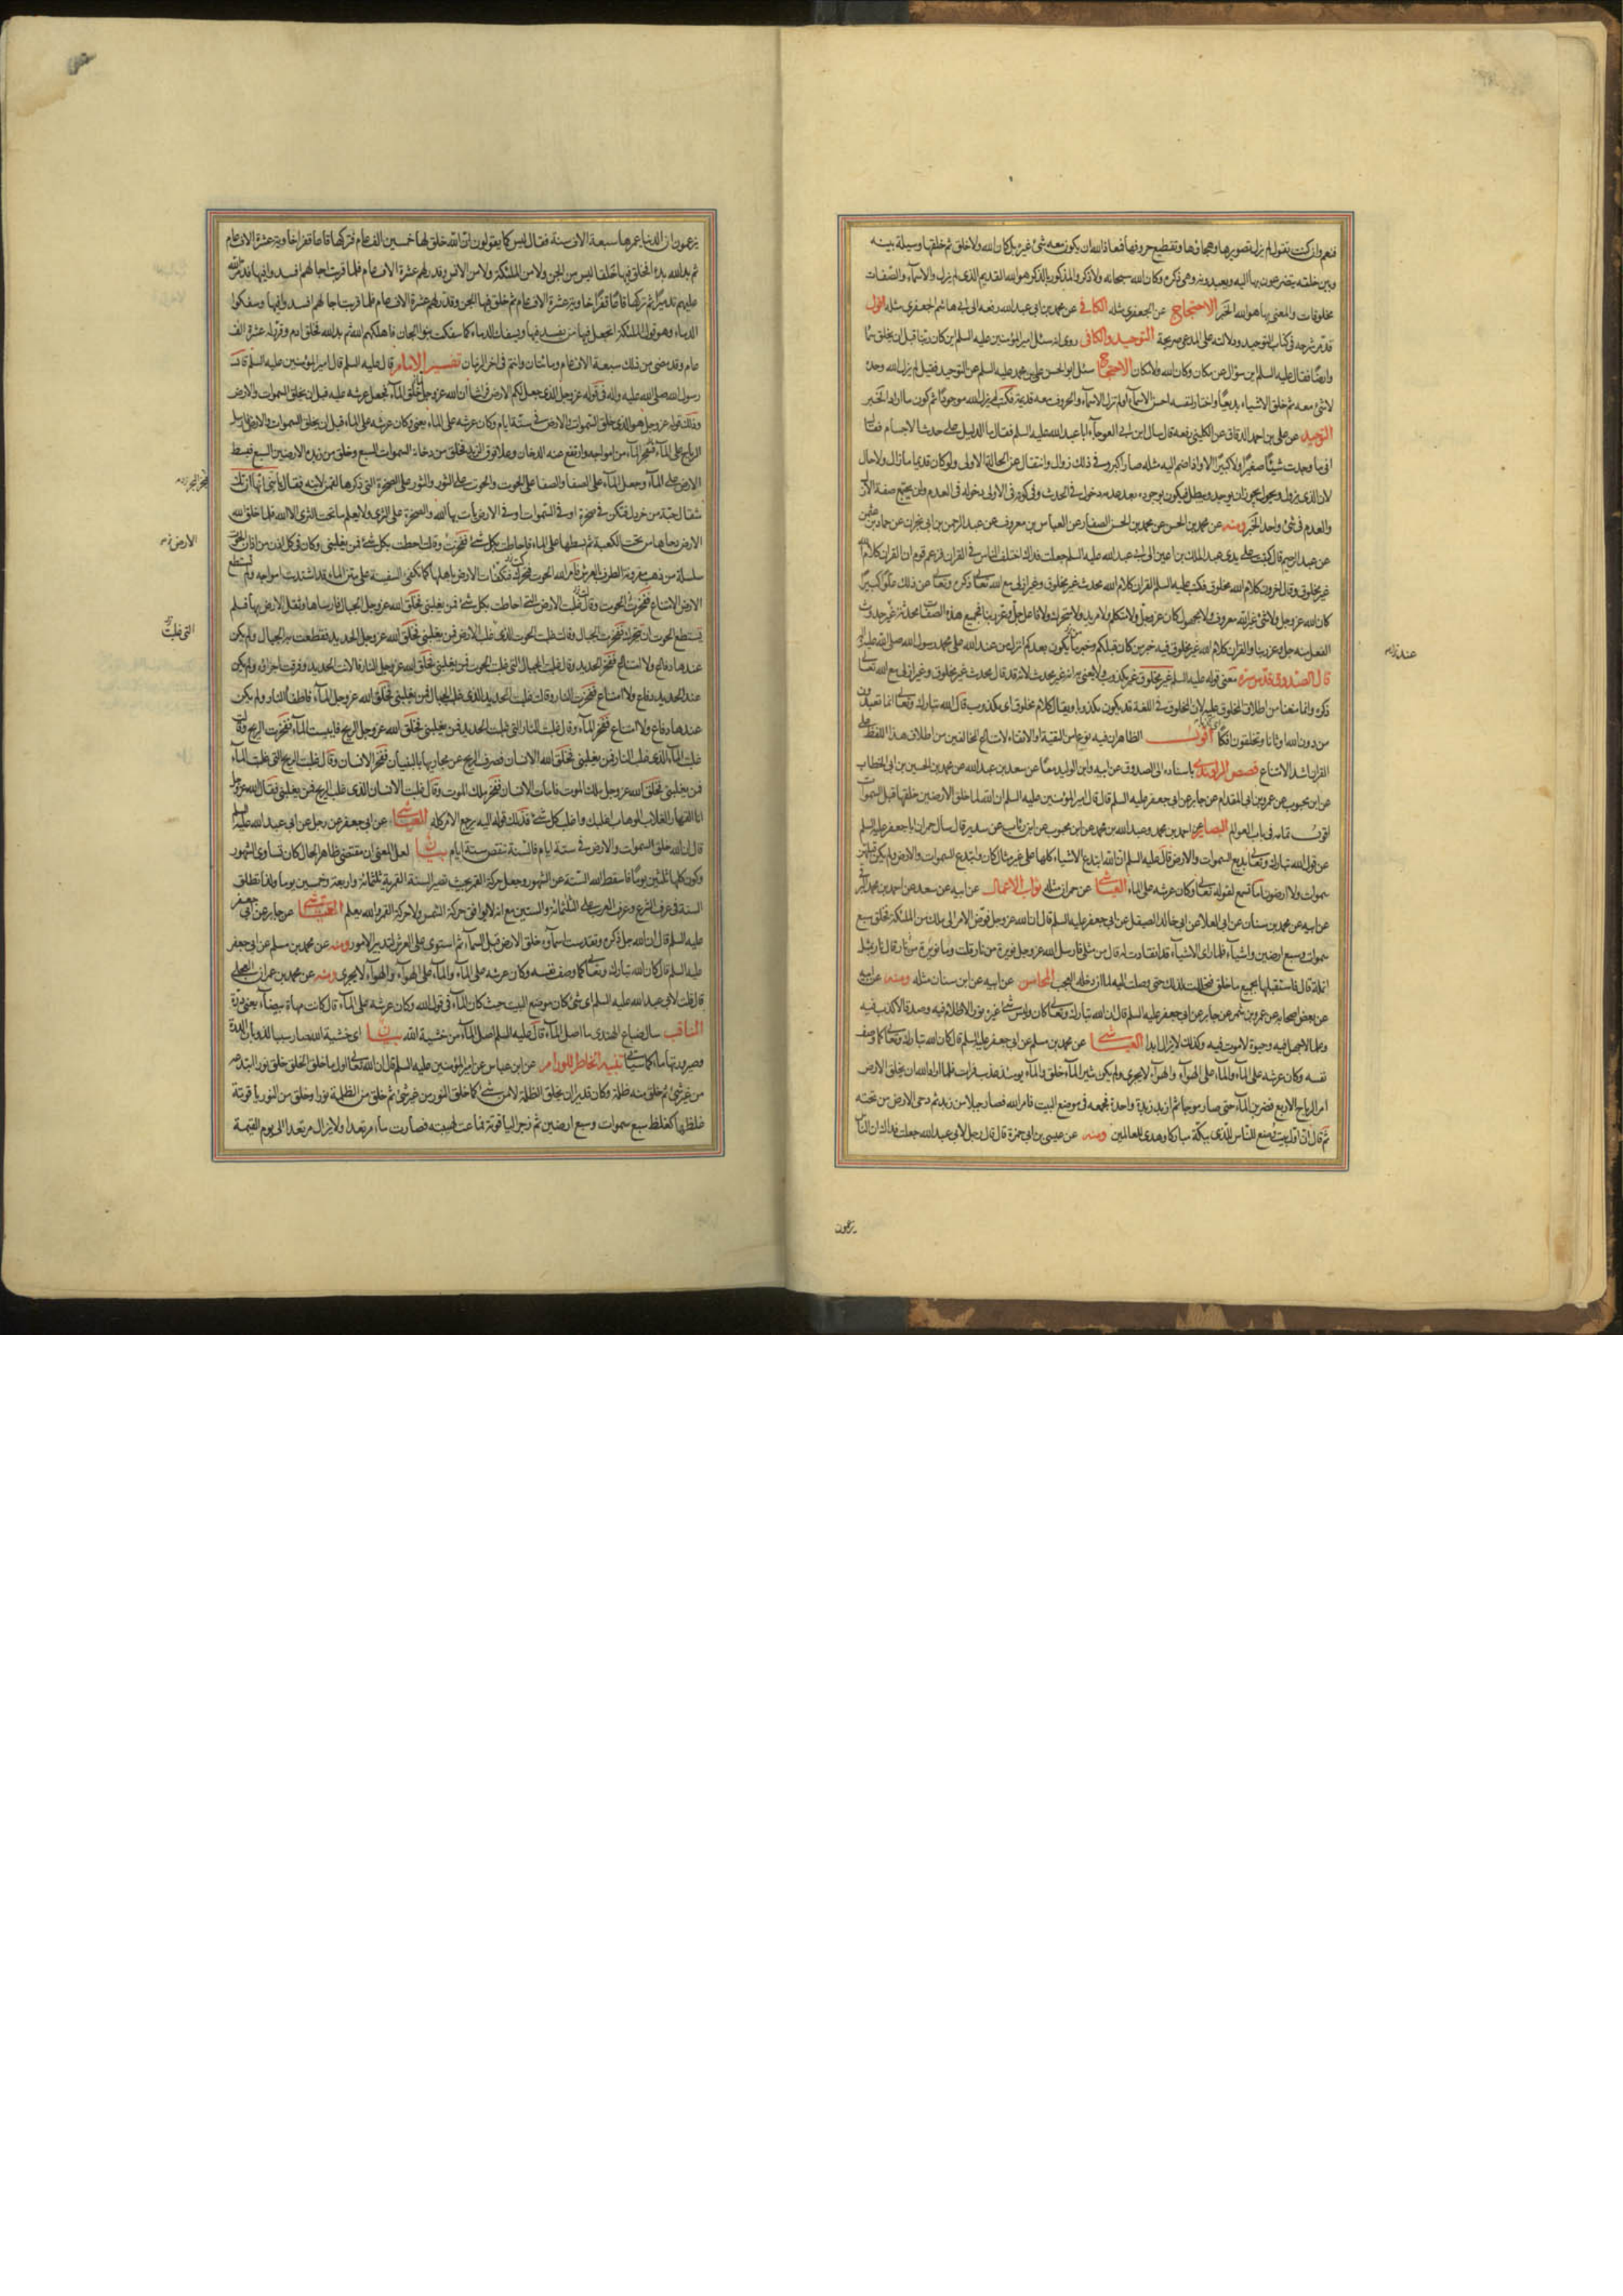 فنعم وان كنت تقول لم يزل تصويرها وهجاؤها وتقطيع حروفها فمعاذ الله ان يكون معه شئ غيره بل كان الله ولا خلق ثم خلقها وسيلة بينه
وبين خلقه يتضرعون بها اليه ويعبدونه وهى ذكره وكان الله سبحانه ولا ذكر والمذكور بالذكر هو الله القديم الذى لم يزل والاسماء والصفات
مخلوقات والمعنى بها هو الله الخبر الاحتجاج عن الجعفرى مثله الكافى عن محمد بن ابى عبد الله رفعه الى ابى هاشم الجعفرى مثله اقول
قد مر شرحه فى كتاب التوحيد ودلالته على المدعى صريحة التوحيد والكافى روى انه سئل امير المؤمنين عليه السلم اين كان ربنا قبل ان يخلق سماء
وارضا فقال عليه السلم اين سؤال عن مكان وكان الله ولا مكان الاحتجاج سئل ابو الحسن على بن محمد عليه السلم عن التوحيد فقيل لم يزل الله وحده
لا شئ معه ثم خلق الاشياء بديعا واختار لنفسه احسن الاسماء او لم تزل الاسماء والحروف معه قديمة فكتب لم يزل الله موجودا ثم كون ما اراد الخبر
التوحيد عن على بن احمد الدقاق عن الكلينى رفعه قال سال ابن ابى العوجاء ابا عبد الله عليه السلم فقال ما الدليل على حدث الاجسام فقال
انى ما وجدت شيئا صغيرا ولا كبيرا الا واذا ضم اليه مثله صار اكبر وفى ذلك زوال وانتقال عن الحالة الاولى ولو كان قديما ما زال ولا حال
لان الذى يزول ويحول يجوز ان يوجد ويبطل فيكون بوجوده بعد عدمه دخول فى الحدث وفى كونه فى الاولى دخوله فى العدم ولن يجتمع صفة الازل
والعدم فى شئ واحد الخبر ومنه عن محمد بن الحسن عن محمد بن الحسن الصفار عن العباس بن معروف عن عبد الرحمن بن ابى نجران عن حماد بن عثمن
عن عبد الرحيم قال كتبت على يدى عبد الملك بن اعين الى ابى عبد الله عليه السلم جعلت فداك اختلف الناس فى القران فزعم قوم ان القران كلام الله
غير مخلوق وقال اخرون كلام الله مخلوق فكتب عليه السلم القران كلام الله محدث غير مخلوق وغير ازلى مع الله تعالى ذكره وتعالى عن ذلك علوا كبيرا
كان الله عز وجل ولا شئ غير الله معروف ولا مجهول كان عز وجل ولا متكلم ولا مريد ولا متحرك ولا فاعل جل وعز ربنا فجميع هذه الصفات محدثة غير حدوث
الفعل منه جل وعز ربنا والقران كلام الله غير مخلوق فيه خبر من كان قبلكم وخبر ما يكون بعدكم انزل من عند الله على محمد رسول الله صلى الله عليه واله
قال الصدوق قدس سره معنى قوله عليه السلم غير مخلوق غير مكذوب ولا يعنى به انه غير محدث لانه قد قال محدث غير مخلوق وغير ازلى مع الله تعالى
ذكره وانما منعنا من اطلاق المخلوق عليه لان المخلوق فى اللغة قد يكون مكذوبا ويقال كلام مخلوق اى مكذوب قال الله تبارك وتعالى انما تعبدون
من دون الله اوثانا وتخلقون افكا اقول الظاهر ان فيه نوعا من التقية او الاتقاء لامتناع المخالفين من اطلاق هذا اللفظ على
القران اشد الامتناع قصص الراوندى باسناده الى الصدوق عن ابيه وابن الوليد معا عن سعد بن عبد الله عن محمد بن الحسين بن ابى الخطاب
عن ابن محبوب عن عمرو بن ابى المقدام عن جابر عن ابى جعفر عليه السلم قال قال امير المؤمنين عليه السلم ان الله لما خلق الارضين خلقها قبل السموات
اقول تمامه فى باب العوالم البصاير عن احمد بن محمد وعبد الله بن محمد عن ابن محبوب عن ابن رئاب عن سدير قال سأل حمران ابا جعفر عليه السلم
عن قول الله تبارك وتعالى بديع السموات والارض قال عليه السلم ان الله ابتدع الاشياء كلها على غير مثال كان وابتدع السموات والارض ولم يكن قبلهن
سموات ولا ارضون اما تسمع لقوله تعالى وكان عرشه على الماء العياشى عن حمران مثله ثواب الاعمال عن ابيه عن سعد عن احمد بن محمد البرقى
عن ابيه عن محمد بن سنان عن ابى العلا عن ابى خالد الصيقل عن ابى جعفر عليه السلم قال ان الله عز وجل فوض الامر الى ملك من الملئكة فخلق سبع
سموات وسبع ارضين واشياء فلما راى الاشياء قد انقادت له قال من مثلى فارسل الله عز وجل نويرة من نار قلت وما نويرة من نار قال نار بمثل
انملة قال فاستقبلها بجميع ما خلق فتخللت لذلك حتى وصلت اليه لما ان دخله العجب المحاسن عن ابيه عن ابن سنان مثله ومنه عن ابيه
عن بعض اصحابه عن عمرو بن شمر عن جابر عن ابى جعفر عليه السلم قال ان الله تبارك وتعالى كان وليس شئ غيره نورا لا ظلام فيه وصدقا لا كذب فيه
وعلما لا جهل فيه وحيوة لا موت فيه وكذلك لا يزال ابدا العياشى عن محمد بن مسلم عن ابى جعفر عليه السلم قال كان الله تبارك وتعالى كما وصف
نفسه وكان عرشه على الماء والماء على الهواء والهواء لا يجرى ولم يكن غير الماء خلق والماء يومئذ عذب فرات فلما اراد الله ان يخلق الارض
امر الرياح الاربع فضربن الماء حتى صار موجا ثم ازبد زبدة واحدة فجمعه فى موضع البيت فامر الله فصار جبلا من زبد ثم دحى الارض من تحته
ثم قال ان اول بيت وضع للناس للذى ببكة مباركا وهدى للعالمين ومنه عن عيسى بن ابى حمزة قال قال رجل لابى عبد الله جعلت فداك ان الناس
يزعمون
يزعمون ان الدنيا عمرها سبعة الاف سنة فقال ليس كما يقولون ان الله خلق لها خمسين الف عام فتركها قاعا قفرا خاوية عشرة الاف عام
ثم بدا لله بدء الخلق فيها خلقا ليس من الجن ولا من الملئكة ولا من الانس وقدر لهم عشرة الاف عام فلما قربت اجالهم افسدوا فيها فدمر الله
عليهم تدميرا ثم تركها قاعا قفرا خاوية عشرة الاف عام ثم خلق فيها الجن وقدر لهم عشرة الاف عام فلما قربت اجالهم افسدوا فيها وسفكوا
الدماء وهو قول الملئكة اتجعل فيها من يفسد فيها ويسفك الدماء كما سفكت بنو الجان فاهلكهم الله ثم بدا لله فخلق ادم وقدر له عشرة الف
عام وقد مضى من ذلك سبعة الاف عام ومائتان وانتم فى اخر الزمان تفسير الامام قال عليه السلم قال امير المؤمنين عليه السلم قال
رسول الله صلى الله عليه واله فى قوله عز وجل الذى جعل لكم الارض فراشا ان الله عز وجل لما خلق الماء فجعل عرشه عليه قبل ان يخلق السموات والارض
وذلك قوله عز وجل هو الذى خلق السموات والارض فى ستة ايام وكان عرشه على الماء يعنى وكان عرشه على الماء قبل ان يخلق السموات والارض فارسل
الرياح على الماء فتفجر الماء من امواجه وارتفع عنه الدخان وعلا فوق الزبد فخلق من دخانه السموات السبع وخلق من زبده الارضين السبع فبسط
الارض على الماء وجعل الماء على الصفا والصفا على الحوت والحوت على الثور والثور على الصخرة التى ذكرها لقمن لابنه فقال يا بنى انها ان تك
مثقال حبة من خردل فتكن فى صخرة او فى السموات او فى الارض يأت بها الله والصخرة على الثرى ولا يعلم ما تحت الثرى الا الله فلما خلق الله
الارض دحاها من تحت الكعبة ثم بسطها على الماء فاحاطت بكل شئ ففخرت وقالت احطت بكل شئ فمن يغلبنى وكان فى كل اذن من اذان الحوت
الارض
سلسلة من ذهب مقرونة الطرف بالعرش فامر الله الحوت فتحرك فتكفأت الارض باهلها كما تكفى السفينة على متن الماء قد اشتدت امواجه ولم تستطع
الارض الامتناع ففخرت الحوت وقال غلبت الارض التى احاطت بكل شئ فمن يغلبنى فخلق الله عز وجل الجبال فارساها وثقل الارض بها فلم
يستطع الحوت ان يتحرك ففخرت الجبال وقالت غلبت الحوت الذى غلب الارض فمن يغلبنى فخلق الله عز وجل الحديد فقطعت به الجبال ولم يكن
التى غلبت
عندها دفاع ولا امتناع ففخر الحديد وقال غلبت الجبال التى غلبت الحوت فمن يغلبنى فخلق الله عز وجل النار فالانت الحديد وفرقت اجزاءه ولم يكن
عند الحديد دفاع ولا امتناع ففخرت النار وقالت غلبت الحديد الذى غلب الجبال فمن يغلبنى فخلق الله عز وجل الماء فاطفأ النار ولم يكن
عندها دفاع ولا امتناع ففخر الماء وقال غلبت النار التى غلبت الحديد فمن يغلبنى فخلق الله عز وجل الريح فايبست الماء ففخرت الريح وقالت
غلبت الماء الذى غلب النار فمن يغلبنى فخلق الله الانسان فصرف الريح عن مجاريها بالبنيان ففخر الانسان وقال غلبت الريح التى غلبت الماء
فمن يغلبنى فخلق الله عز وجل ملك الموت فامات الانسان ففخر ملك الموت وقال غلبت الانسان الذى غلب الريح فمن يغلبنى فقال الله عز وجل
انا القهار الغلاب الوهاب اغلبك واغلب كل شئ فذلك قوله اليه يرجع الامر كله العياشى عن ابى جعفر عن رجل عن ابى عبد الله عليه السلم
قال ان الله خلق السموات والارض فى ستة ايام فالسنة تنقص ستة ايام بيان لعل المعنى ان مقتضى ظاهر الحال كان تساوى الشهور
وكون كلها ثلثين يوما فاسقط الله الستة عن الشهور وجعل حركة القمر بحيث تصير السنة القمرية ثلثمائة واربعة وخمسين يوما ولذا تطلق
السنة فى عرف الشرع وعرف العرب على الثلثمائة والستين مع انه لا يوافق حركة الشمس ولا حركة القمر والله يعلم العياشى عن جابر عن ابى جعفر
عليه السلم قال ان الله جل ذكره وتقدست اسماؤه خلق الارض قبل السماء ثم استوى على العرش لتدبير الامور ومنه عن محمد بن مسلم عن ابى جعفر
عليه السلم قال كان الله تبارك وتعالى كما وصف نفسه وكان عرشه على الماء والماء على الهواء والهواء لا يجرى ومنه عن محمد بن عمران العجلى
قال قلت لابى عبد الله عليه السلم اى شئ كان موضع البيت حيث كان الماء فى قول الله وكان عرشه على الماء قال كانت مهاة بيضاء يعنى درة
المناقب سال ضباع الهندى ما اصل الماء قال عليه السلم اصل الماء من خشية الله بيان اى خشية الله صار سببا لذوبان الدرة
وصيرورتها ماء كما سياتى تنبيه الخاطر للورام عن ابن عباس عن امير المؤمنين عليه السلم قال ان الله تعالى اول ما خلق الخلق خلق نورا ابتدعه
من غير شئ ثم خلق منه ظلمة وكان قديرا ان يخلق الظلمة لا من شئ كما خلق النور من غير شئ ثم خلق من الظلمة نورا وخلق من النور ياقوتة
غلظها كغلظ سبع سموات وسبع ارضين ثم زجر الياقوتة فماعت لهيبته فصارت ماء مرتعدا ولا يزال مرتعدا الى يوم القيمة